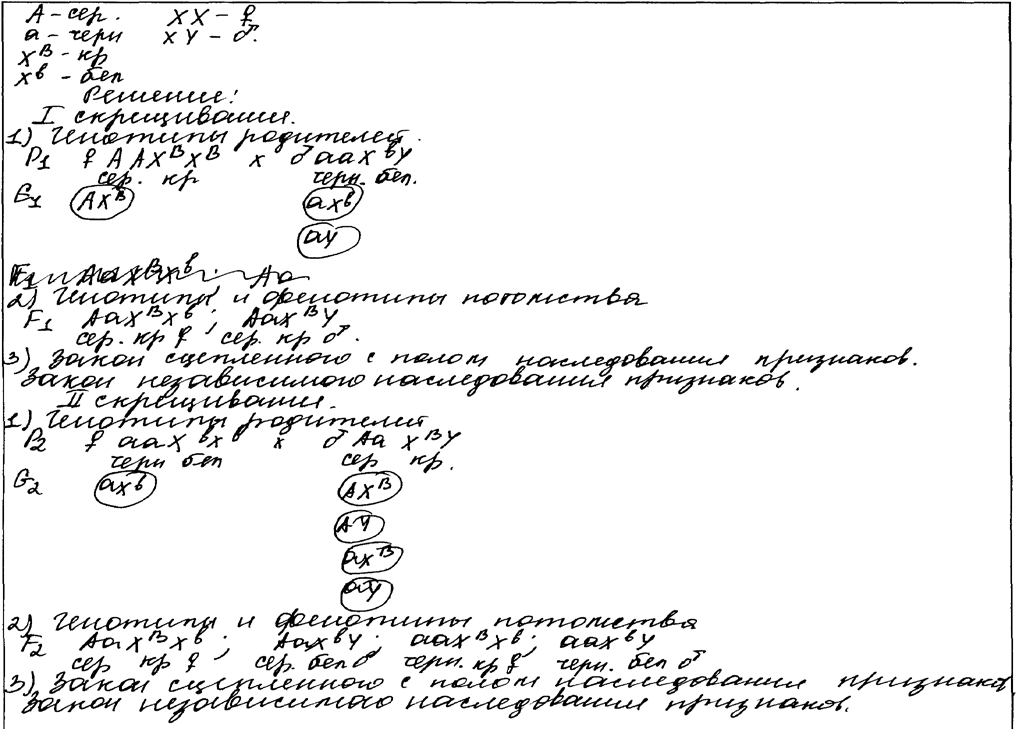 А - сер. XX - ♀
а - черн XY - ♂.
X^B - кр
X^b - бел
Решение:
I скрещивание.
1) Генотипы родителей.
P1 ♀ AAX^BX^B x ♂ aaX^bY
сер. кр черн. бел.
G1 AX^B aX^b
aY
F1 AaX^BX^b; Aa
2) Генотипы и фенотипы потомства
F1 AaX^BX^b; AaX^BY
сер. кр ♀, сер. кр ♂.
3) Закон сцепленного с полом наследования признаков.
Закон независимого наследования признаков.
II скрещивание.
1) Генотипы родителей
P2 ♀ aaX^bX^b x ♂ Aa X^BY
черн бел сер кр.
G2 aX^b AX^B
AY
aX^B
aY
2) Генотипы и фенотипы потомства
F2 AaX^BX^b; AaX^bY; aaX^BX^b; aaX^bY
сер кр ♀, сер. бел ♂ черн. кр ♀, черн. бел ♂
3) Закон сцепленного с полом наследования признаков
Закон независимого наследования признаков.